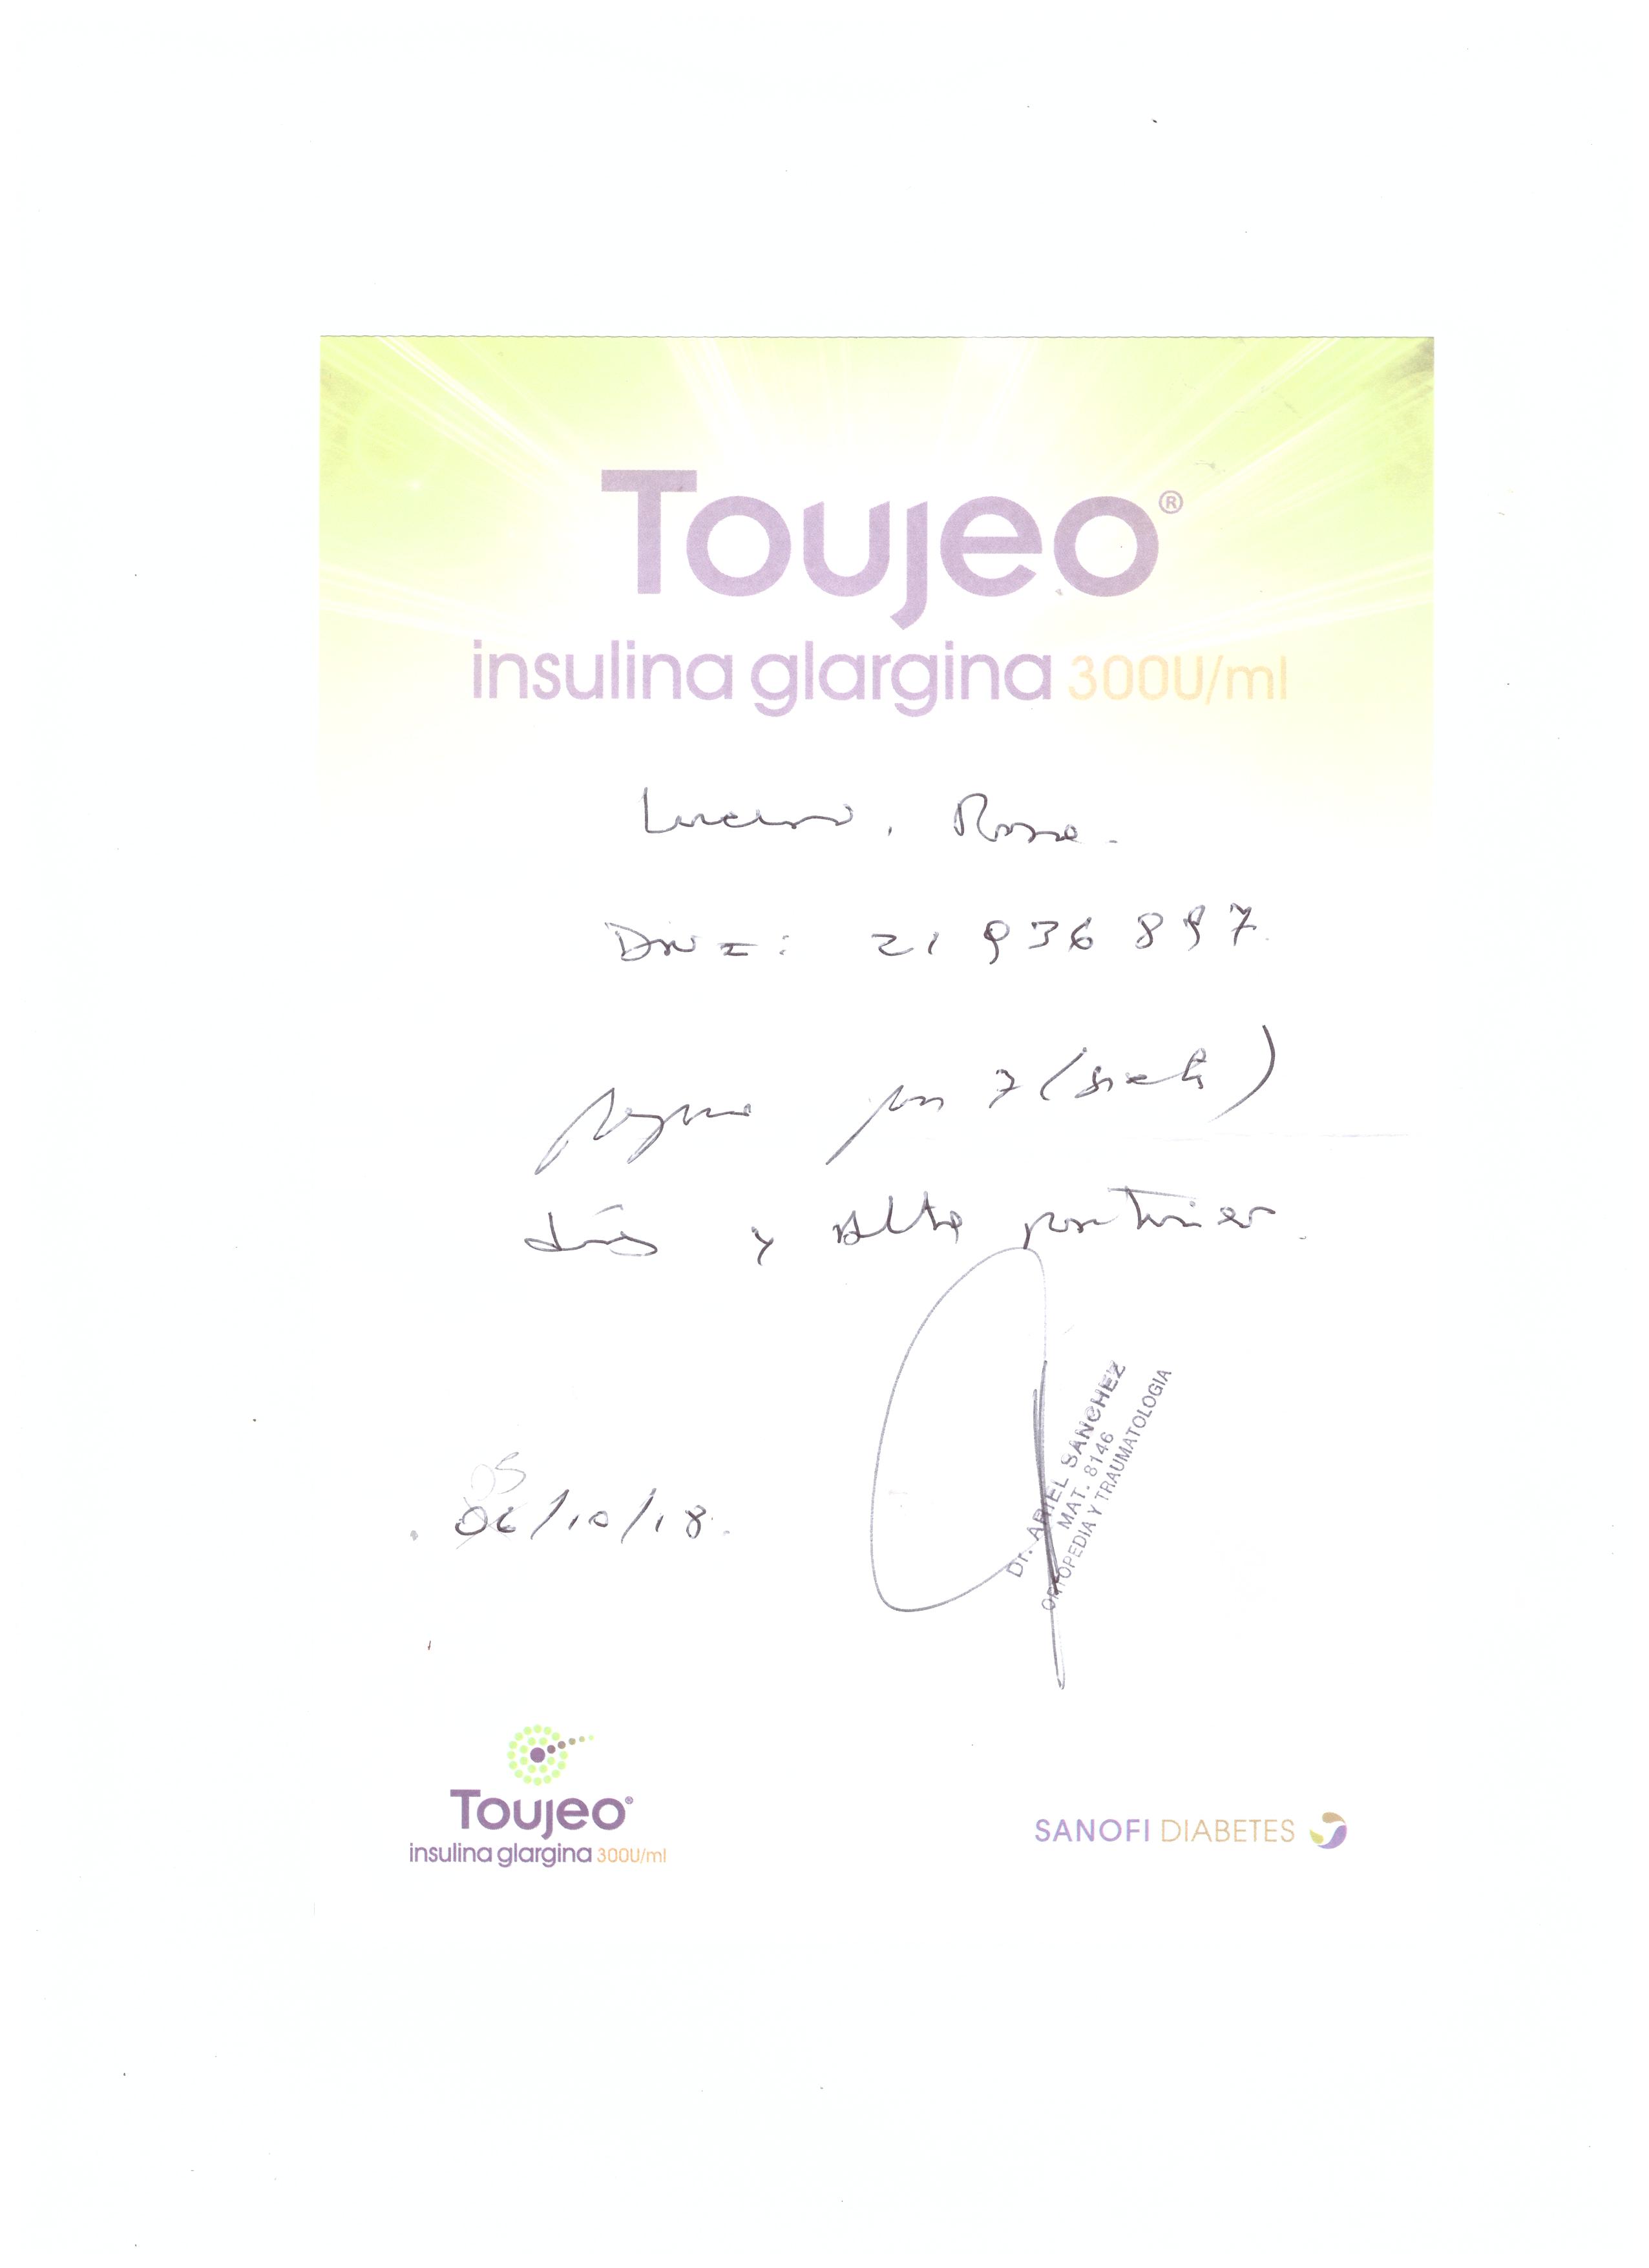 Toujeo®
insulina glargina 300U/ml
Rosa.
DNI: 21 936 897.
por 7 (siete)
días y Alta posterior.
Dr. ARIEL SANCHEZ
MAT. 8146
ORTOPEDIA Y TRAUMATOLOGIA
05
06/10/18.
Toujeo®
insulina glargina 300U/ml
SANOFI DIABETES